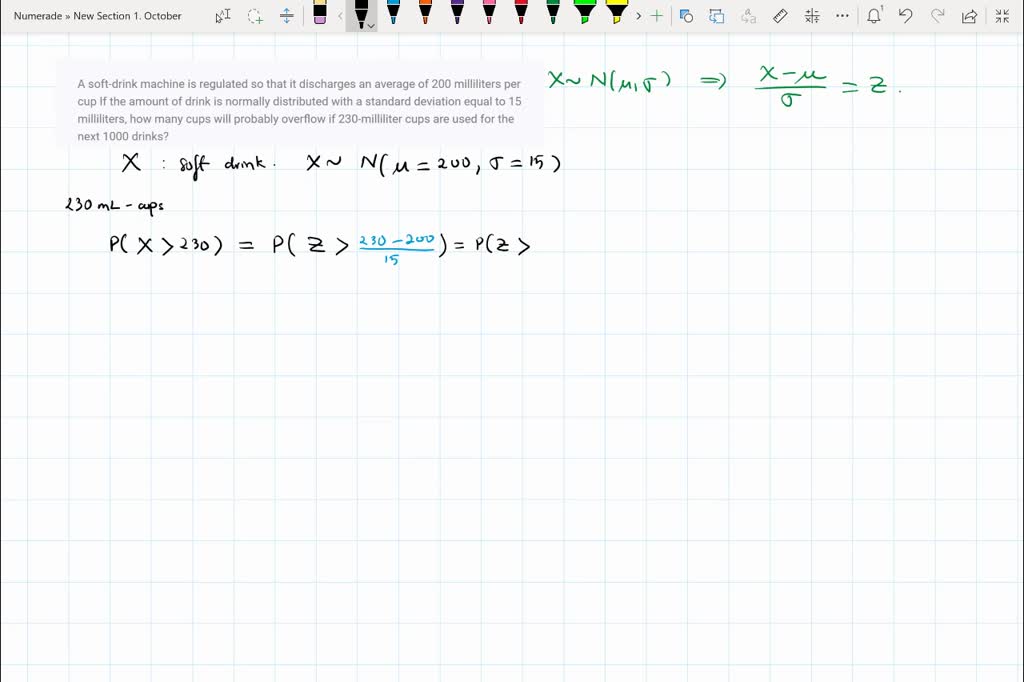 Numerade » New Section 1. October
A soft-drink machine is regulated so that it discharges an average of 200 milliliters per
cup If the amount of drink is normally distributed with a standard deviation equal to 15
milliliters, how many cups will probably overflow if 230-milliliter cups are used for the
next 1000 drinks?
X ~ N(μ, σ) ⇒ X - μ / σ = Z.
X : soft drink. X ~ N(μ = 200, σ = 15)
230 mL - cups
P(X > 230) = P(Z > 230 - 200 / 15) = P(Z >